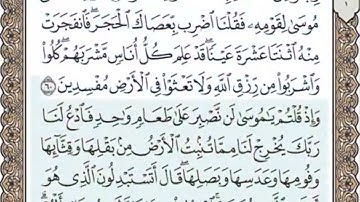 مُوسَىٰ لِقَوْمِهِۦ فَقُلْنَا ٱضْرِب بِّعَصَاكَ ٱلْحَجَرَ ۖ فَٱنفَجَرَتْ
مِنْهُ ٱثْنَتَا عَشْرَةَ عَيْنًا ۖ قَدْ عَلِمَ كُلُّ أُنَاسٍ مَّشْرَبَهُمْ ۖ كُلُوا۟
وَٱشْرَبُوا۟ مِن رِّزْقِ ٱللَّهِ وَلَا تَعْثَوْا۟ فِى ٱلْأَرْضِ مُفْسِدِينَ ٦٠
وَإِذْ قُلْتُمْ يَـٰمُوسَىٰ لَن نَّصْبِرَ عَلَىٰ طَعَامٍ وَٰحِدٍ فَٱدْعُ لَنَا
رَبَّكَ يُخْرِجْ لَنَا مِمَّا تُنۢبِتُ ٱلْأَرْضُ مِنۢ بَقْلِهَا وَقِثَّآئِهَا
وَفُومِهَا وَعَدَسِهَا وَبَصَلِهَا ۖ قَالَ أَتَسْتَبْدِلُونَ ٱلَّذِى هُوَ